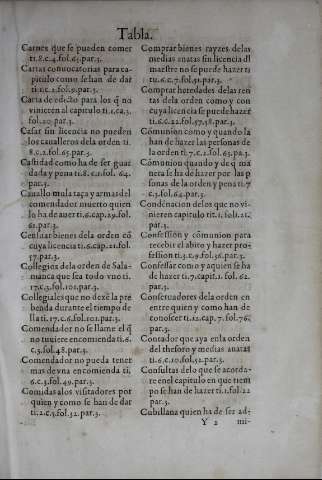 Tabla.
Carnes que se pueden comer
ti.8.c.4.fol.65.par.3.
Cartas convocatorias para ca-
pitulo como se han de dar
ti.1.c.2.fol.9.par.3.
Carta de edicto para los q̃ no
vinieren al capitulo ti.1.ca.3.
fol.20.par.3.
Casar sin licencia no pueden
los cavalleros dela orden ti.
8.c.2.fol.65.par.3.
Castidad como ha de ser guar
dada y pena ti.8.c.1.fol. 64.
par.3.
Cavallo mula taça y armas del
comendador muerto quien
lo ha de aver ti.6.cap.29.fol.
61.par.3.
Censitar bienes dela orden cõ
cuya licencia ti.6.cap.21.fol.
57.par.3.
Collegios dela orden de Sala-
manca que sea todo vno ti.
17.c.3.fol.101.par.3.
Collegiales que no dexẽ la pre
benda durante el tiempo de
lla ti.17.c.6.fol.102.par.3.
Comendador no se llame el q̃
no tuviere encomienda ti.6.
c.3.fol.48.par.3.
Comendador no pueda tener
mas de vna encomienda ti,
6.c.3.fol.49.par.3.
Comidas a los visitadores por
quien y como se han de dar
ti.2.c.3.fol.32.par.3.
Comprar bienes rayzes delas
medias anatas sin licencia dl
maestro no se puede hazer ti
tu.6.c.7.fol.51.par.3.
Comprar heredades delas ren
tas dela orden como y con
cuya licencia se puede hazer
ti.6.c.22.fol.57.58.par.3.
Cõmunion como y quando la
han de hazer las personas de
la orden ti.7.c.2.fol.63.pa.3.
Cõmunion quando y de q̃ ma
neta se ha de hazer por las p
sonas de la orden y pena ti.7
c.3.fol.64.par.3.
Condenacion delos que no vi-
nieren capitulo tit.1.fol.21.
par.3.
Confession y cõmunion para
recebir el abito y hazer pro-
fession ti.3.c.9.fol.36.par.3.
Confessar como y a quien se ha
de hazer ti.7.capit.1. fol. 62.
par.3.
Conservadores dela orden en
entre quien y como han de
conoscer ti.12.cap.7. fol.76.
par.3.
Contador que aya enla orden
del thesoro y medias anatas
ti.6.c.10.fol.52.par.3.
Consultas delo que se acorda-
re enel capitulo en que tiem
po se han de hazer ti.1.fol.22
par.3.
Cubillana quien ha de ser ad-
Y 2 mi-